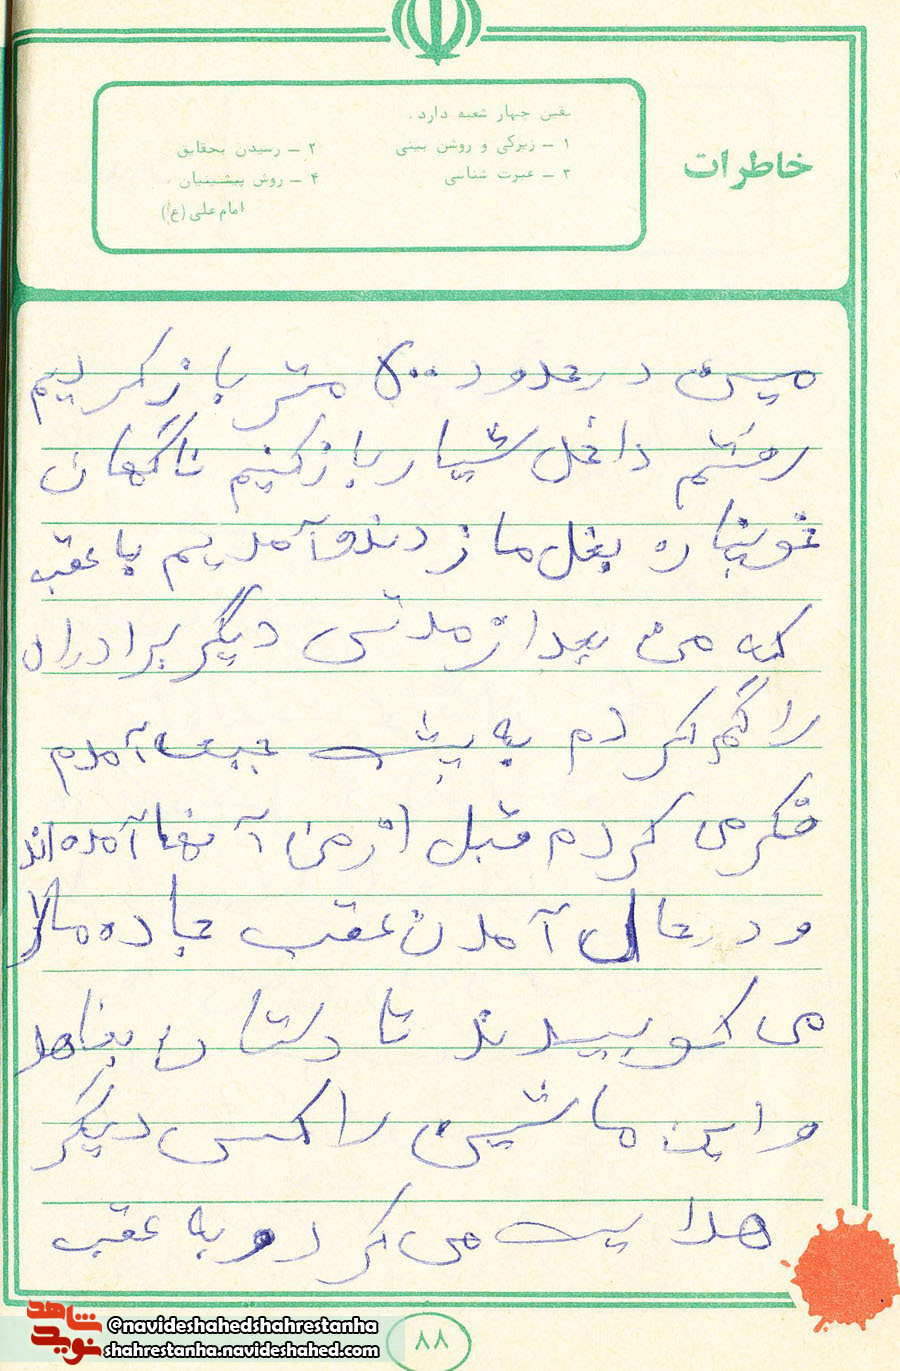 خاطرات
یقین چهار شعبه دارد.
۱ – زیرکی و روشن بینی
۲ – رسیدن بحقایق
۳ – عبرت شناسی
۴ – روش پیشینیان
امام علی (ع)
مین در حدود ۵۰۰ متر باز کردیم
رفتم داخل شیار باز کنیم ناگهان
خوپناره بغل ما زدند و آمدیم با عقب
که من بعد از مدتی دیگر برادران
را گم کردم به پشت جبهه آمدم
فکر می کردم قبل از من آنها آمده اند
و در حال آمدن عقب جاده مالا
می کوبیدند تا دلتان بخاهد
و این ماشین را کسی دیگر
هدایت می کرد و به عقب
شاهد
نوید
@navideshahedshahrestanha
shahrestanha.navideshahed.com
۸۸